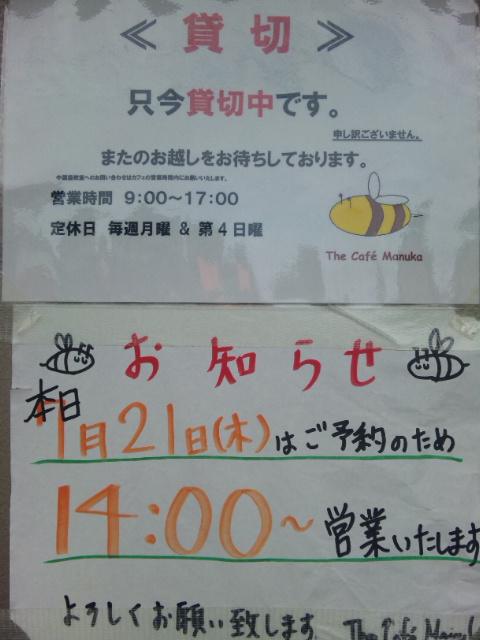 ≪ 貸切 ≫
只今貸切中です。
申し訳ございません。
またのお越しをお待ちしております。
営業時間 9:00～17:00
定休日 毎週月曜 & 第4日曜
The Café Manuka
お知らせ
本日
7月21日(木)はご予約のため
14:00～営業いたします
よろしくお願い致します The Café